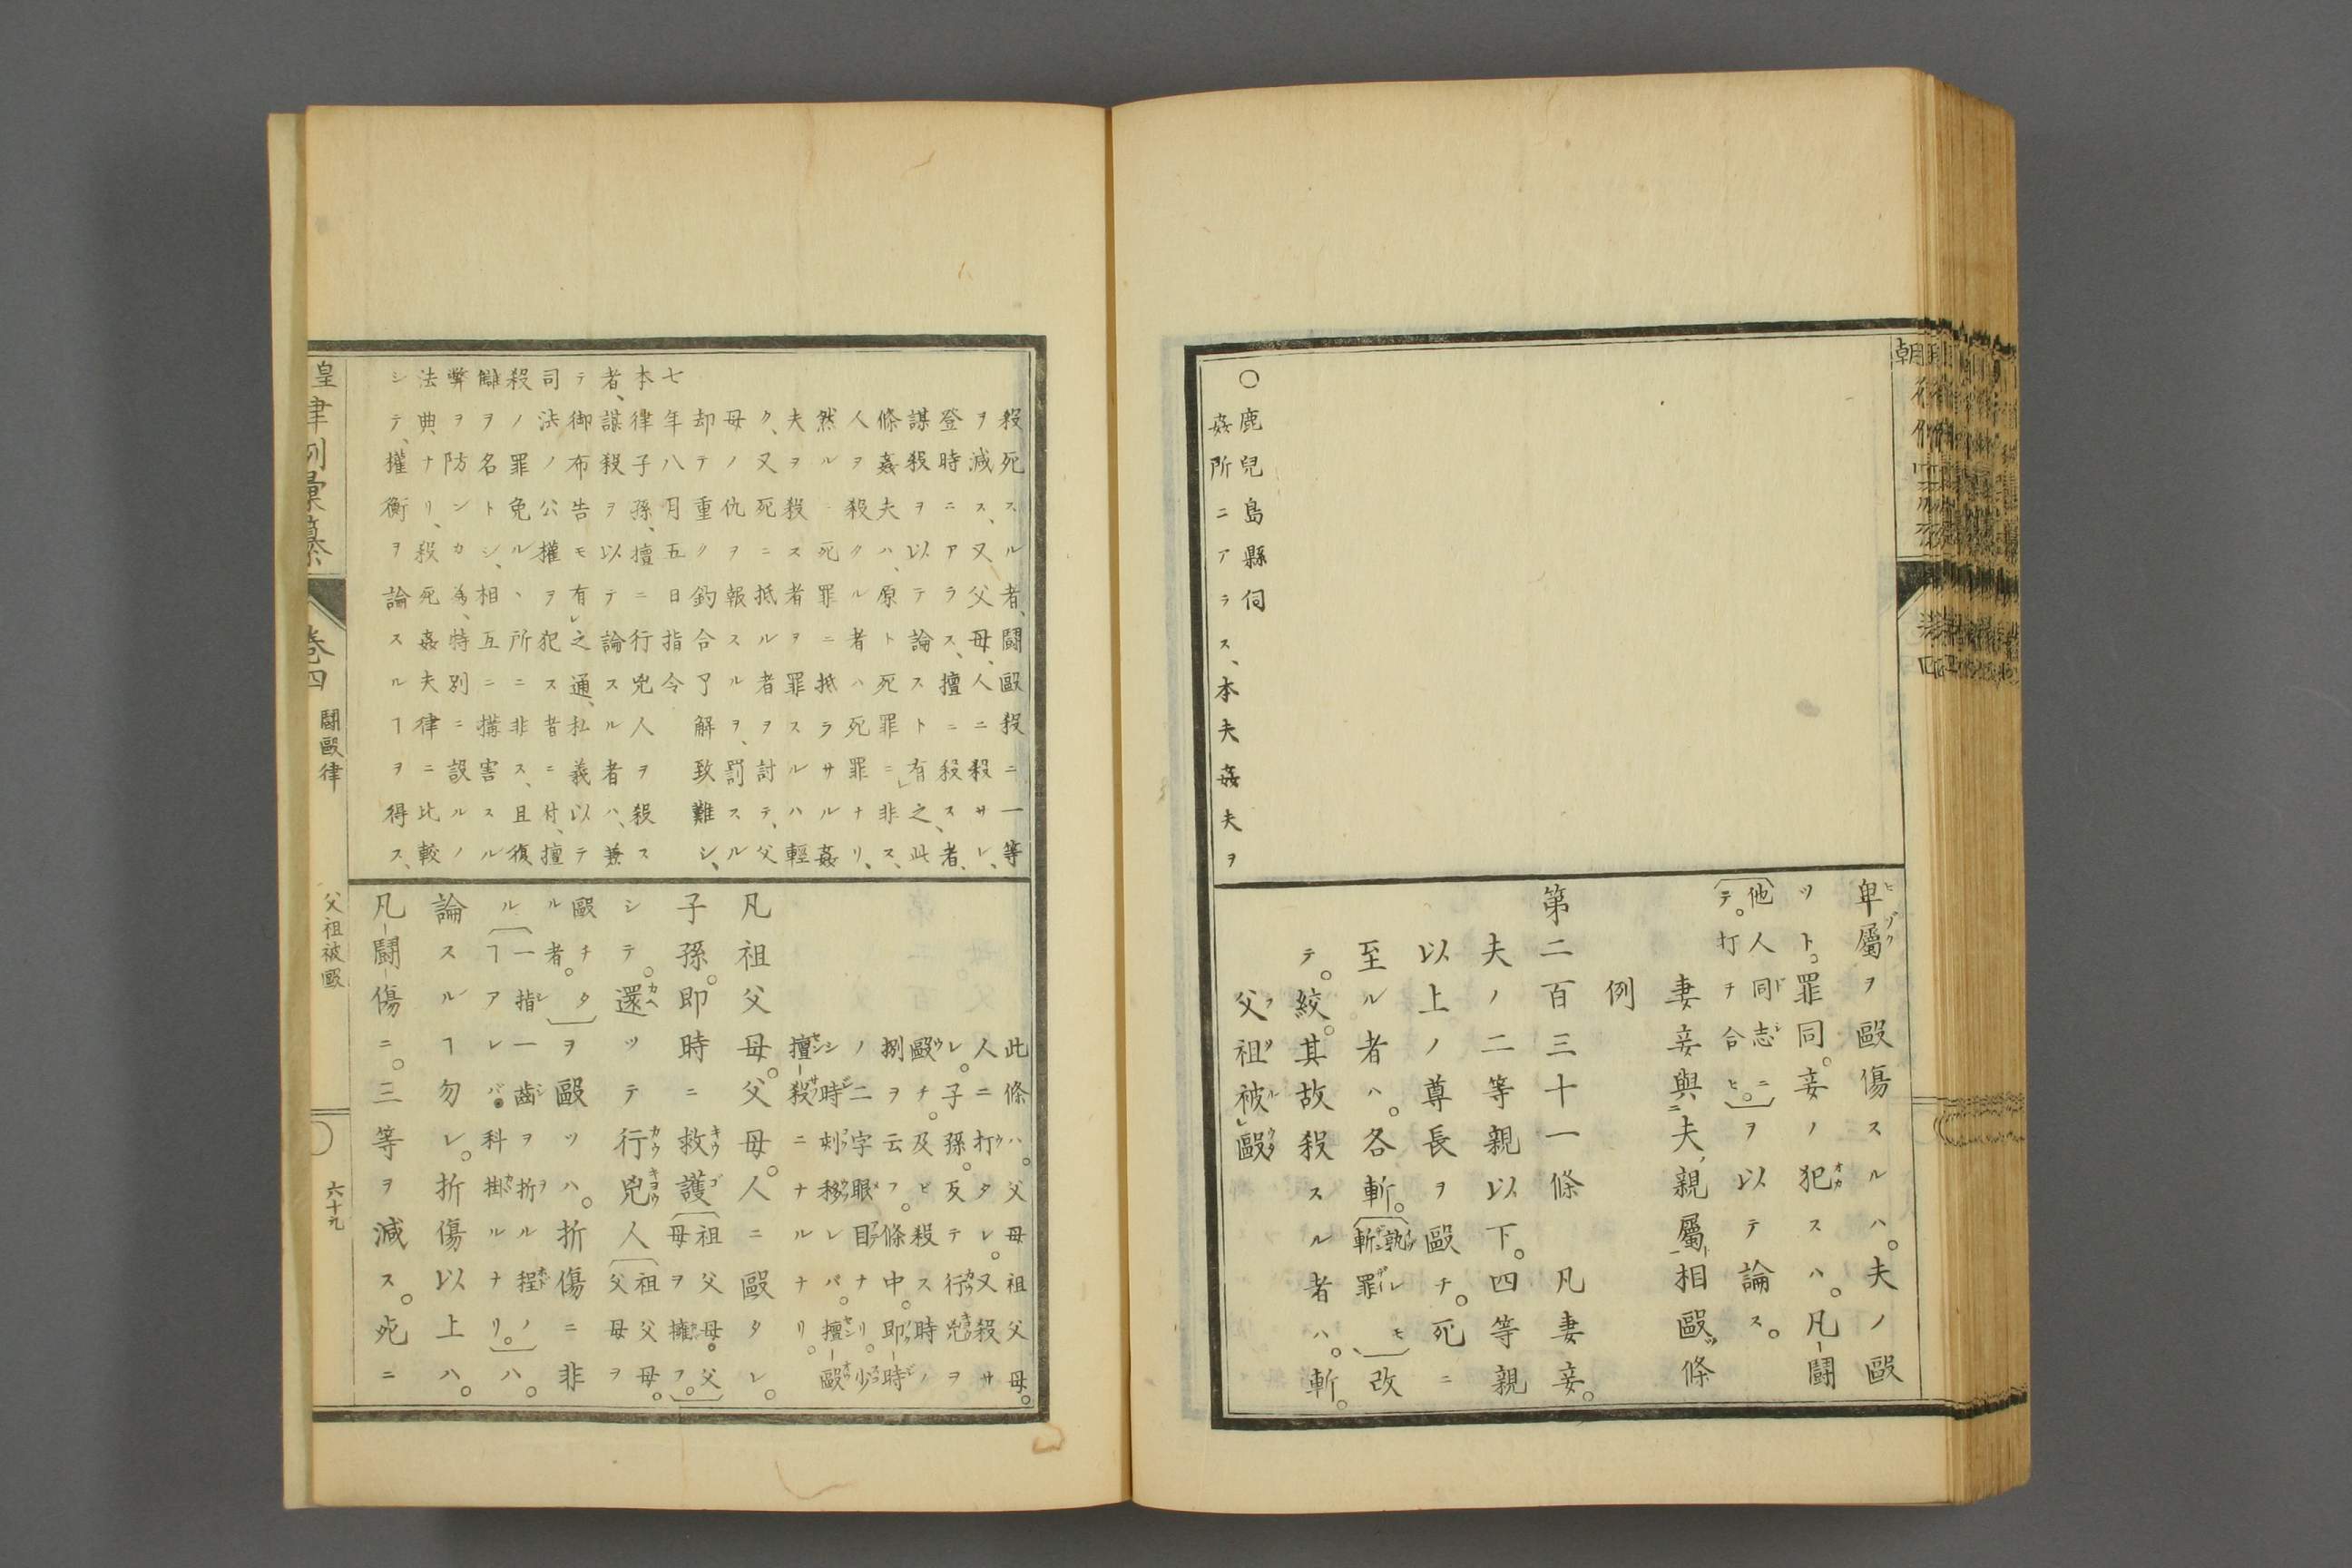 ○鹿兒島縣伺
姦所ニアラス、本夫姦夫ヲ
卑屬ヲ毆傷スルハ。夫ノ毆
ツト。罪同。妾ノ犯スハ。凡鬪
他人同志ニ
テ。打チ合ヒ。ヲ以テ論ス。
妻妾與夫親屬相毆條
例
第二百三十一條 凡妻妾。
夫ノ二等親以下。四等親
以上ノ尊長ヲ毆チ。死ニ
至ル者ハ。各斬。孰レモ斬罪改
テ。絞。其故殺スル者ハ。斬。
父祖被毆
殺死スル者、鬪毆殺ニ一等
ヲ減ス、又父母、人ニ殺サレ、
登時ニアラス、擅ニ殺ス者、
謀殺ヲ以テ論スト有之、此
條姦夫ハ、原ト死罪ニ非ス、
人ヲ殺クル者ハ死罪ナリ、
然ルニ死罪ニ抵ラサル姦
夫ヲ殺ス者ヲ罪スルハ輕
ク、又死ニ抵ル者ヲ討テ、父
母ノ仇ヲ報スルヲ、罰スル
却テ重ク釣合了解致難シ、
七年八月五日指令
本律子孫、擅ニ行兇人ヲ殺ス
者、謀殺ヲ以テ論スル者ハ、兼
テ御布告モ有之通、私義以テ
司法ノ公權ヲ犯ス者ニ付、擅
殺ノ罪免ルヽ所ニ非ス、且復
讎ヲ名トシ、相互ニ搆害スル
弊ヲ防ンカ爲、特別ニ設ルノ
法典ナリ、殺死姦夫律ニ比較
シテ、權衡ヲ論スルヿヲ得ス、
此條ハ。父母祖父母。
人ニ打タレ。又殺サ
レ。子孫。反テ行兇ヲ
毆チ。及ヒ殺ス時ノ
捌ヲ云フ。條中。即時
ノ二字眼目ナリ。少
シ時刻移レバ。擅毆
擅殺ニナルナリ。
凡祖父母。父母。人ニ毆タレ。
子孫。即時ニ救護祖父母。父母ヲ擁フ。
シテ。還ツテ行兇人祖父母。父母ヲ
毆チタル者。ヲ毆ツハ。折傷ニ非
ル一指一齒ヲ折ル程ノヿアレバ。科掛ルナリ。ハ。
論スルヿ勿レ。折傷以上ハ。
凡鬪傷ニ。三等ヲ減ス。死ニ
皇律例彙纂 卷四 鬪毆律 父祖被毆 六十九